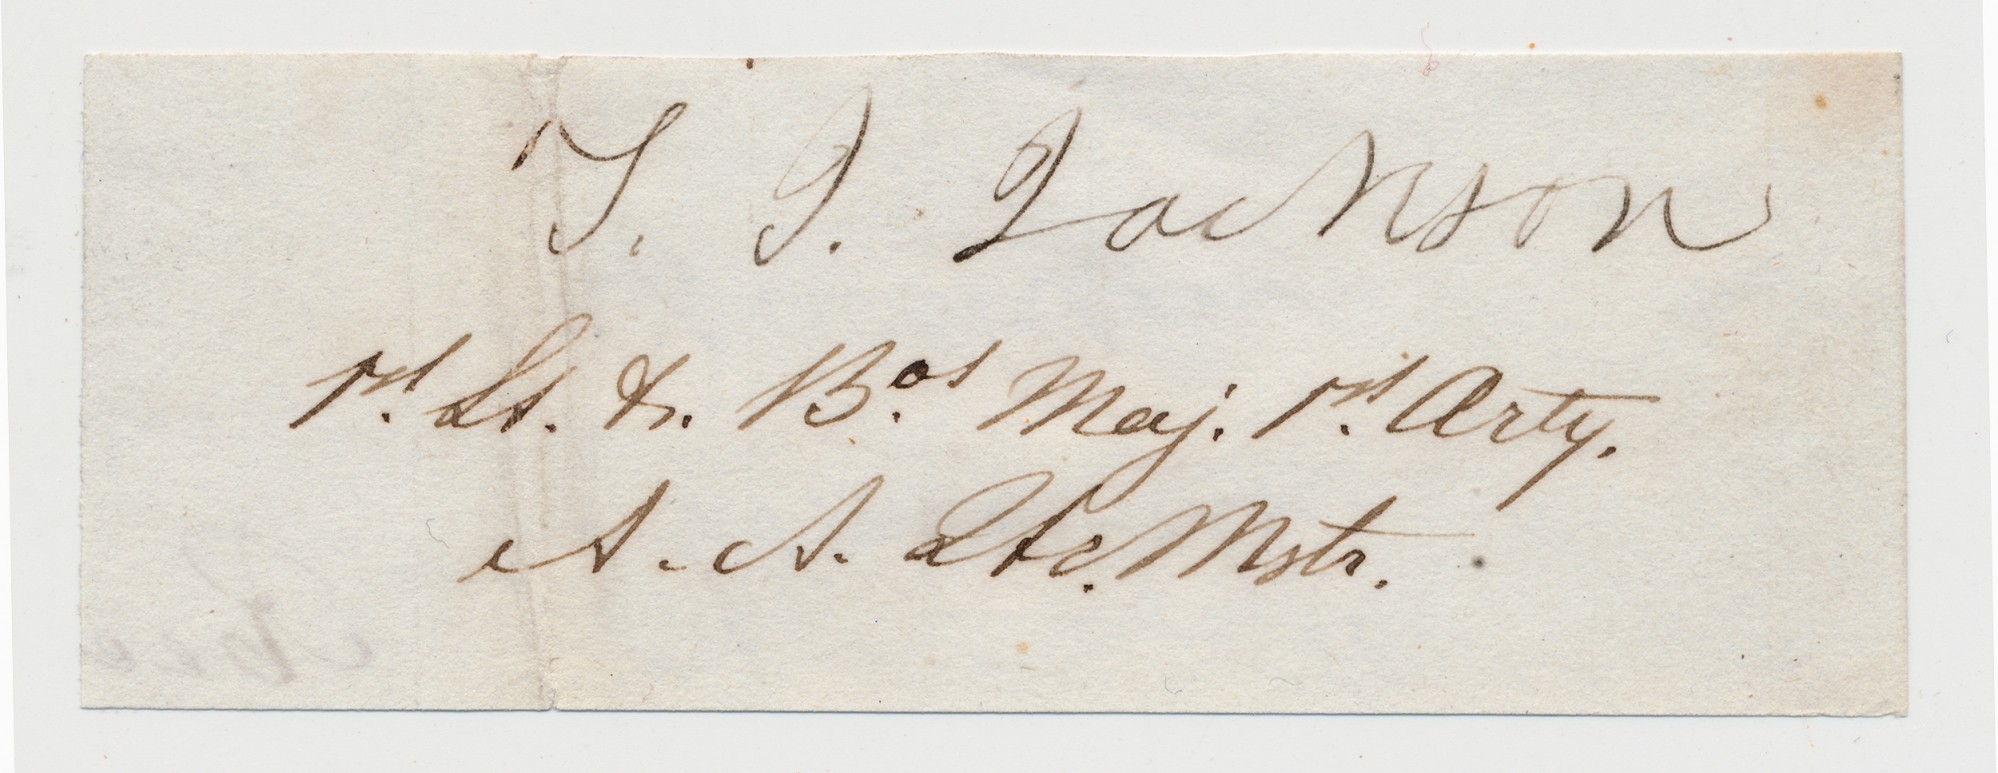 T. J. Jackson
1st. Lt. & Bvt. Maj. 1st. Arty.
A. A. Qr. Mstr.